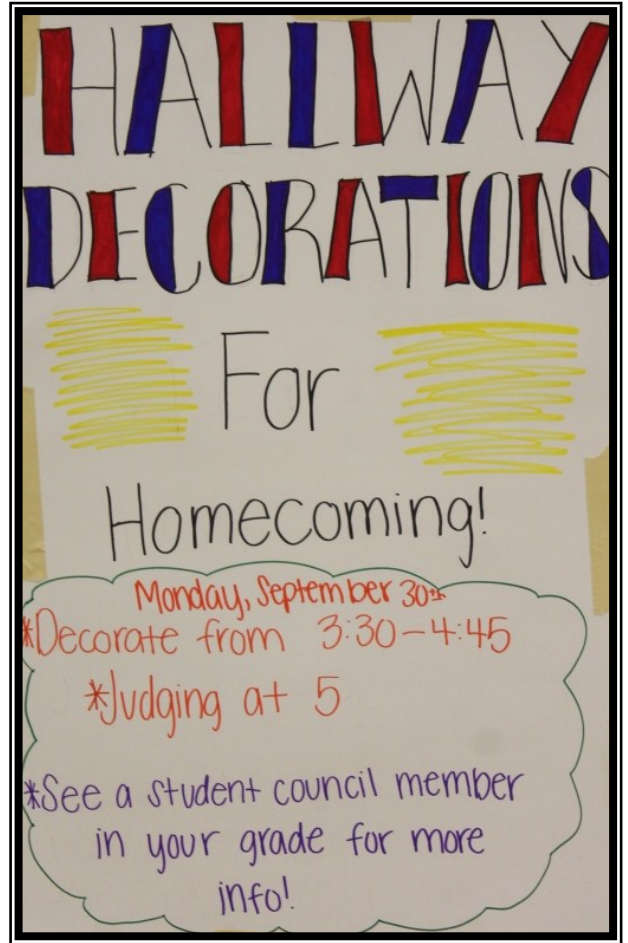 HALLWAY
DECORATIONS
For
Homecoming!
Monday, September 30th
*Decorate from 3:30-4:45
*Judging at 5
*See a student council member
in your grade for more
info!